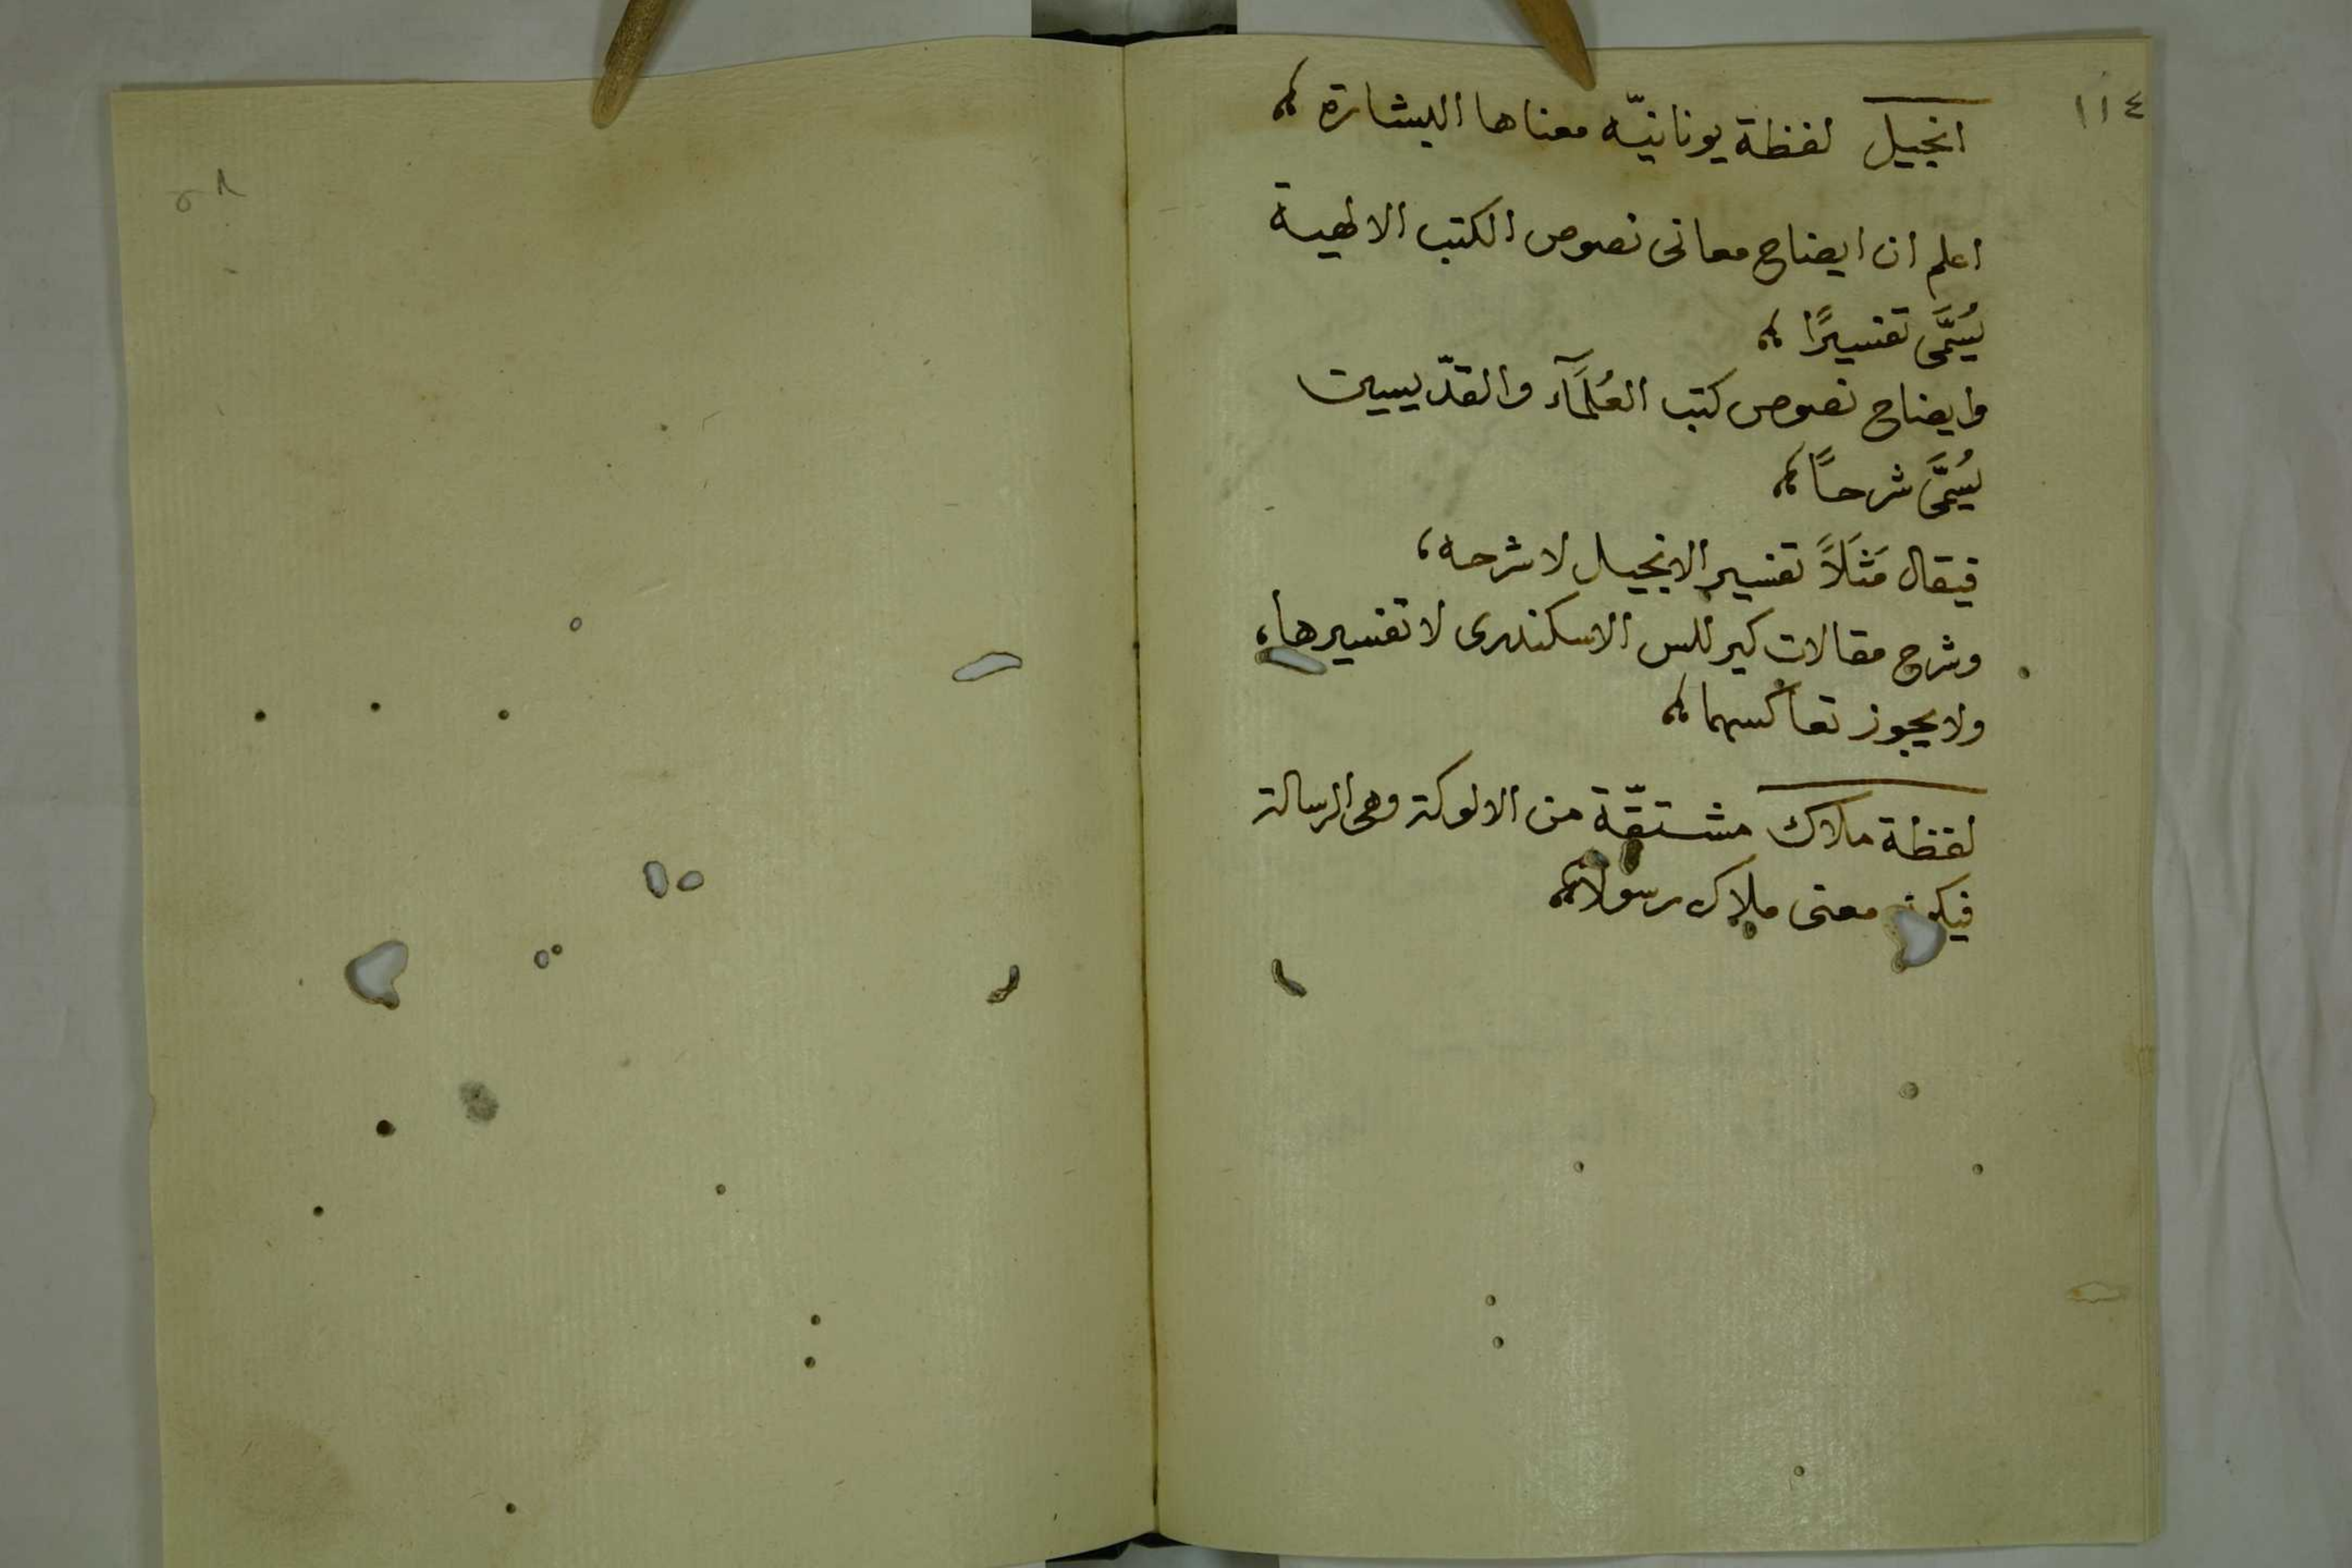 ١١٤
انجيل لفظة يونانيّه معناها البشارة ؞
اعلم ان ايضاح معانى نصوص الكتب الالهية
يُسَمَّى تفسيرًا ؞
وايضاح نصوص كتب العُلمَآء والقدّيسين
يُسَمَّى شرحاً ؞
فيقال مَثَلاً تفسير الانجيل لا شرحه،
وشرح مقالات كيرللس الاسكندرى لا تفسيرها،
ولا يجوز تعاكسهما ؞
لفظة ملاك مشتقّة من الالوكة وهى الرسالة
فيكون معنى ملاك رسولا ؞